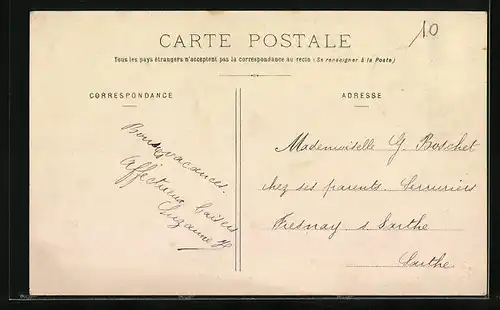 CARTE POSTALE
10
Tous les pays étrangers n'acceptent pas la correspondance au recto (Se renseigner à la Poste)
CORRESPONDANCE
Bonnes vacances.
Affectueux baisers
Suzanne
ADRESSE
Mademoiselle G. Boschet
chez ses parents. Serruriers
Fresnay s Sarthe
Sarthe